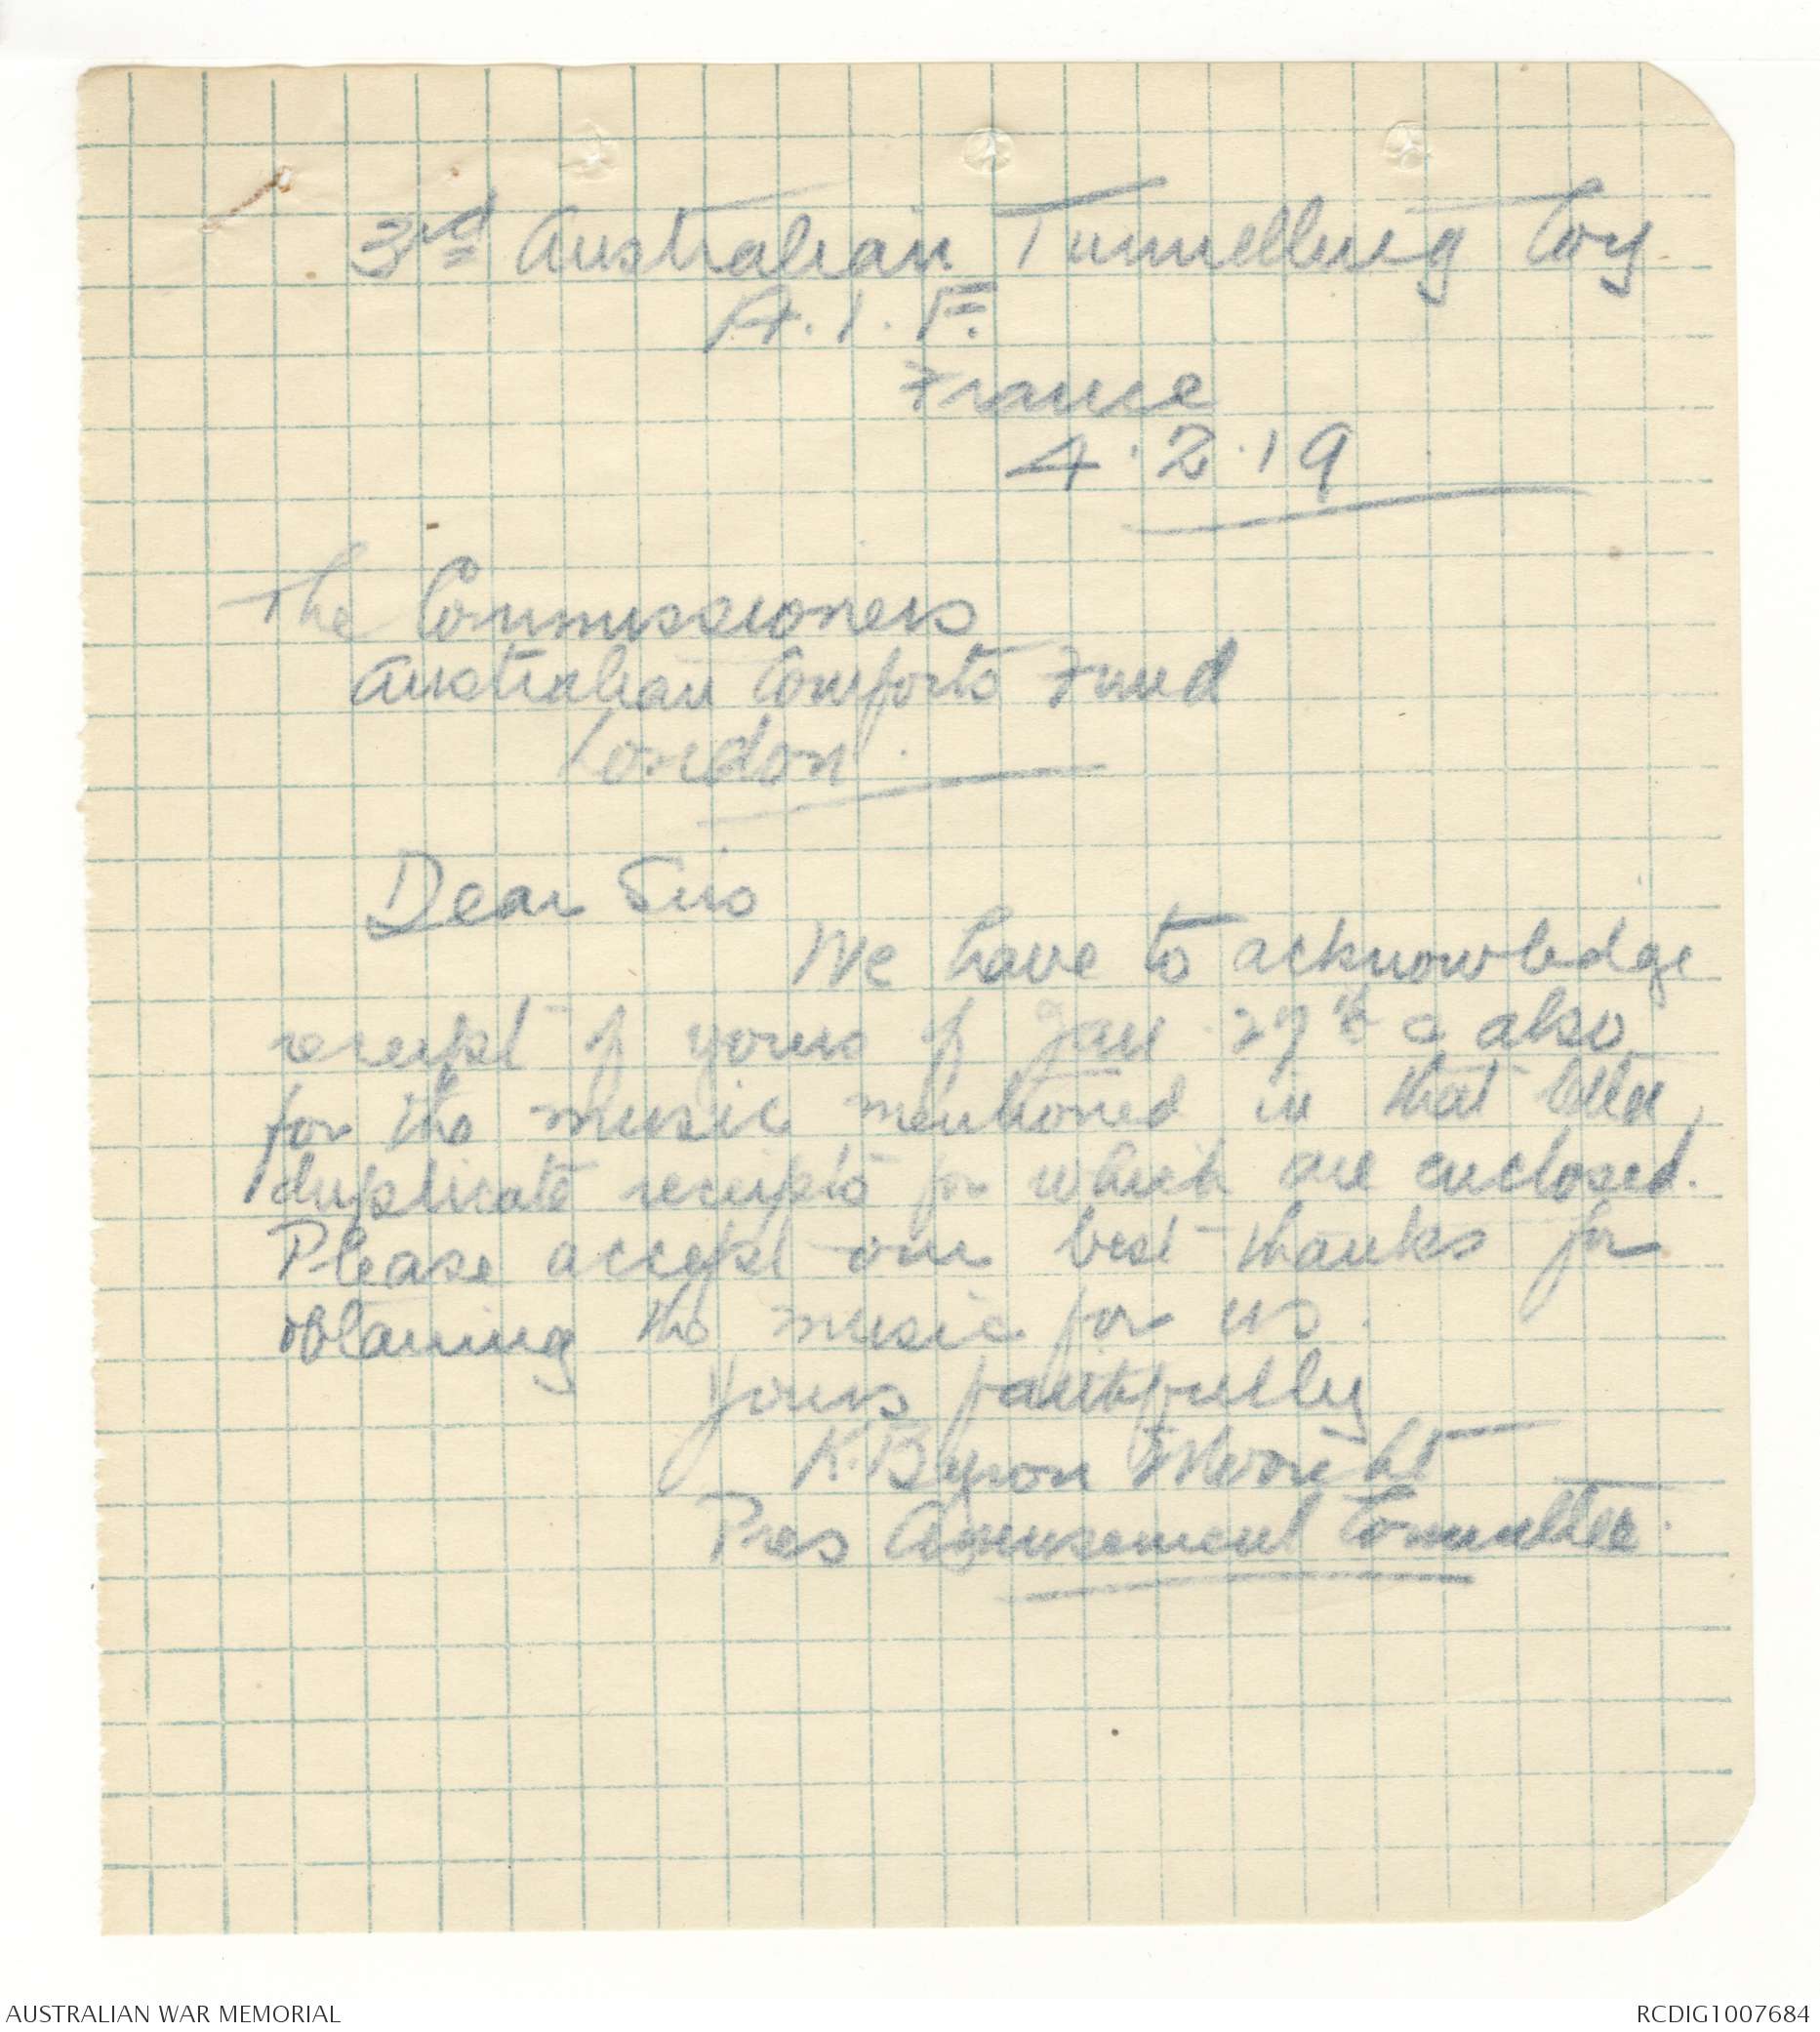 3rd Australian Tunnelling Coy.
A.I.F.
France
4.2.19
The Commissioners
Australian Comforts Fund
London.
Dear Sirs
We have to acknowledge
receipt of yours of Jan 27th & also
for the music mentioned in that letter,
duplicate receipts for which are enclosed.
Please accept our best thanks for
obtaining the music for us.
Yours faithfully
K. Byron
Pres Amusement Committee.
AUSTRALIAN WAR MEMORIAL
RCDIG1007684